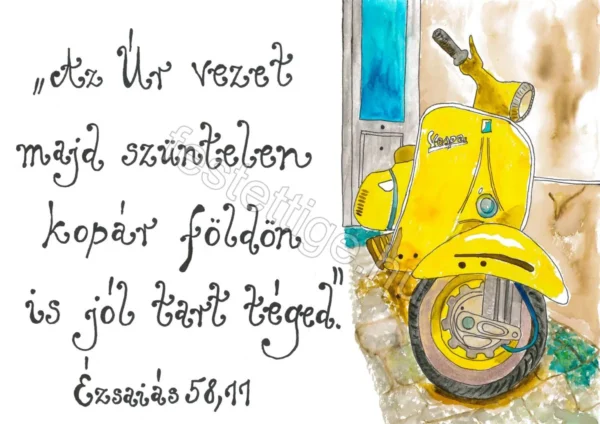 „Az Úr vezet
majd szüntelen
kopár földön
is jól tart téged."
Ézsaiás 58,11
Vespa
festettige